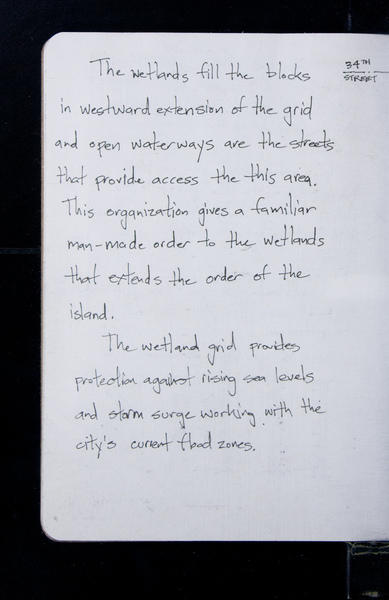 The wetlands fill the blocks
in westward extension of the grid
and open waterways are the streets
that provide access the this area.
This organization gives a familiar
man-made order to the wetlands
that extends the order of the
island.
The wetland grid provides
protection against rising sea levels
and storm surge working with the
city's current flood zones.
34TH
STREET